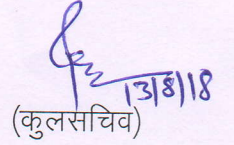 13/8/18
(कुलसचिव)